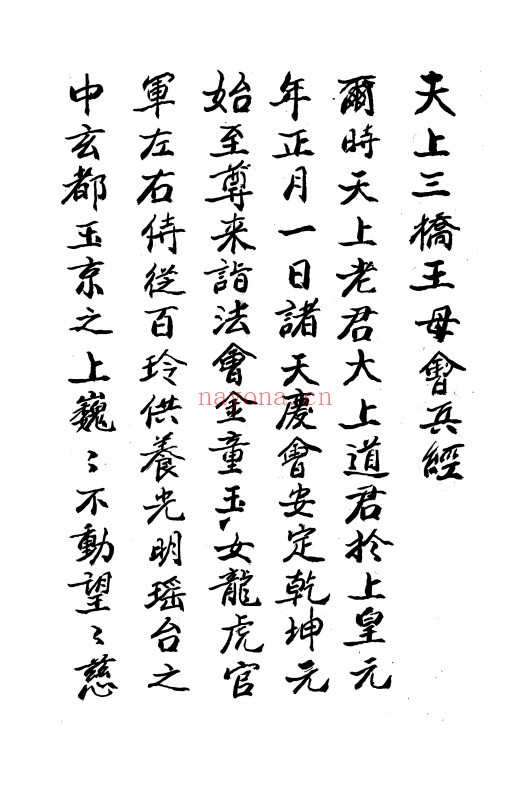 天上三橋王母會兵經
爾時天上老君大上道君於上皇元
年正月一日諸天慶會安定乾坤元
始至尊来詣法會金童玉女龍虎官
軍左右侍從百玲供養光明瑶台之
中玄都玉京之上巍〻不動望〻慈
nayona.cn